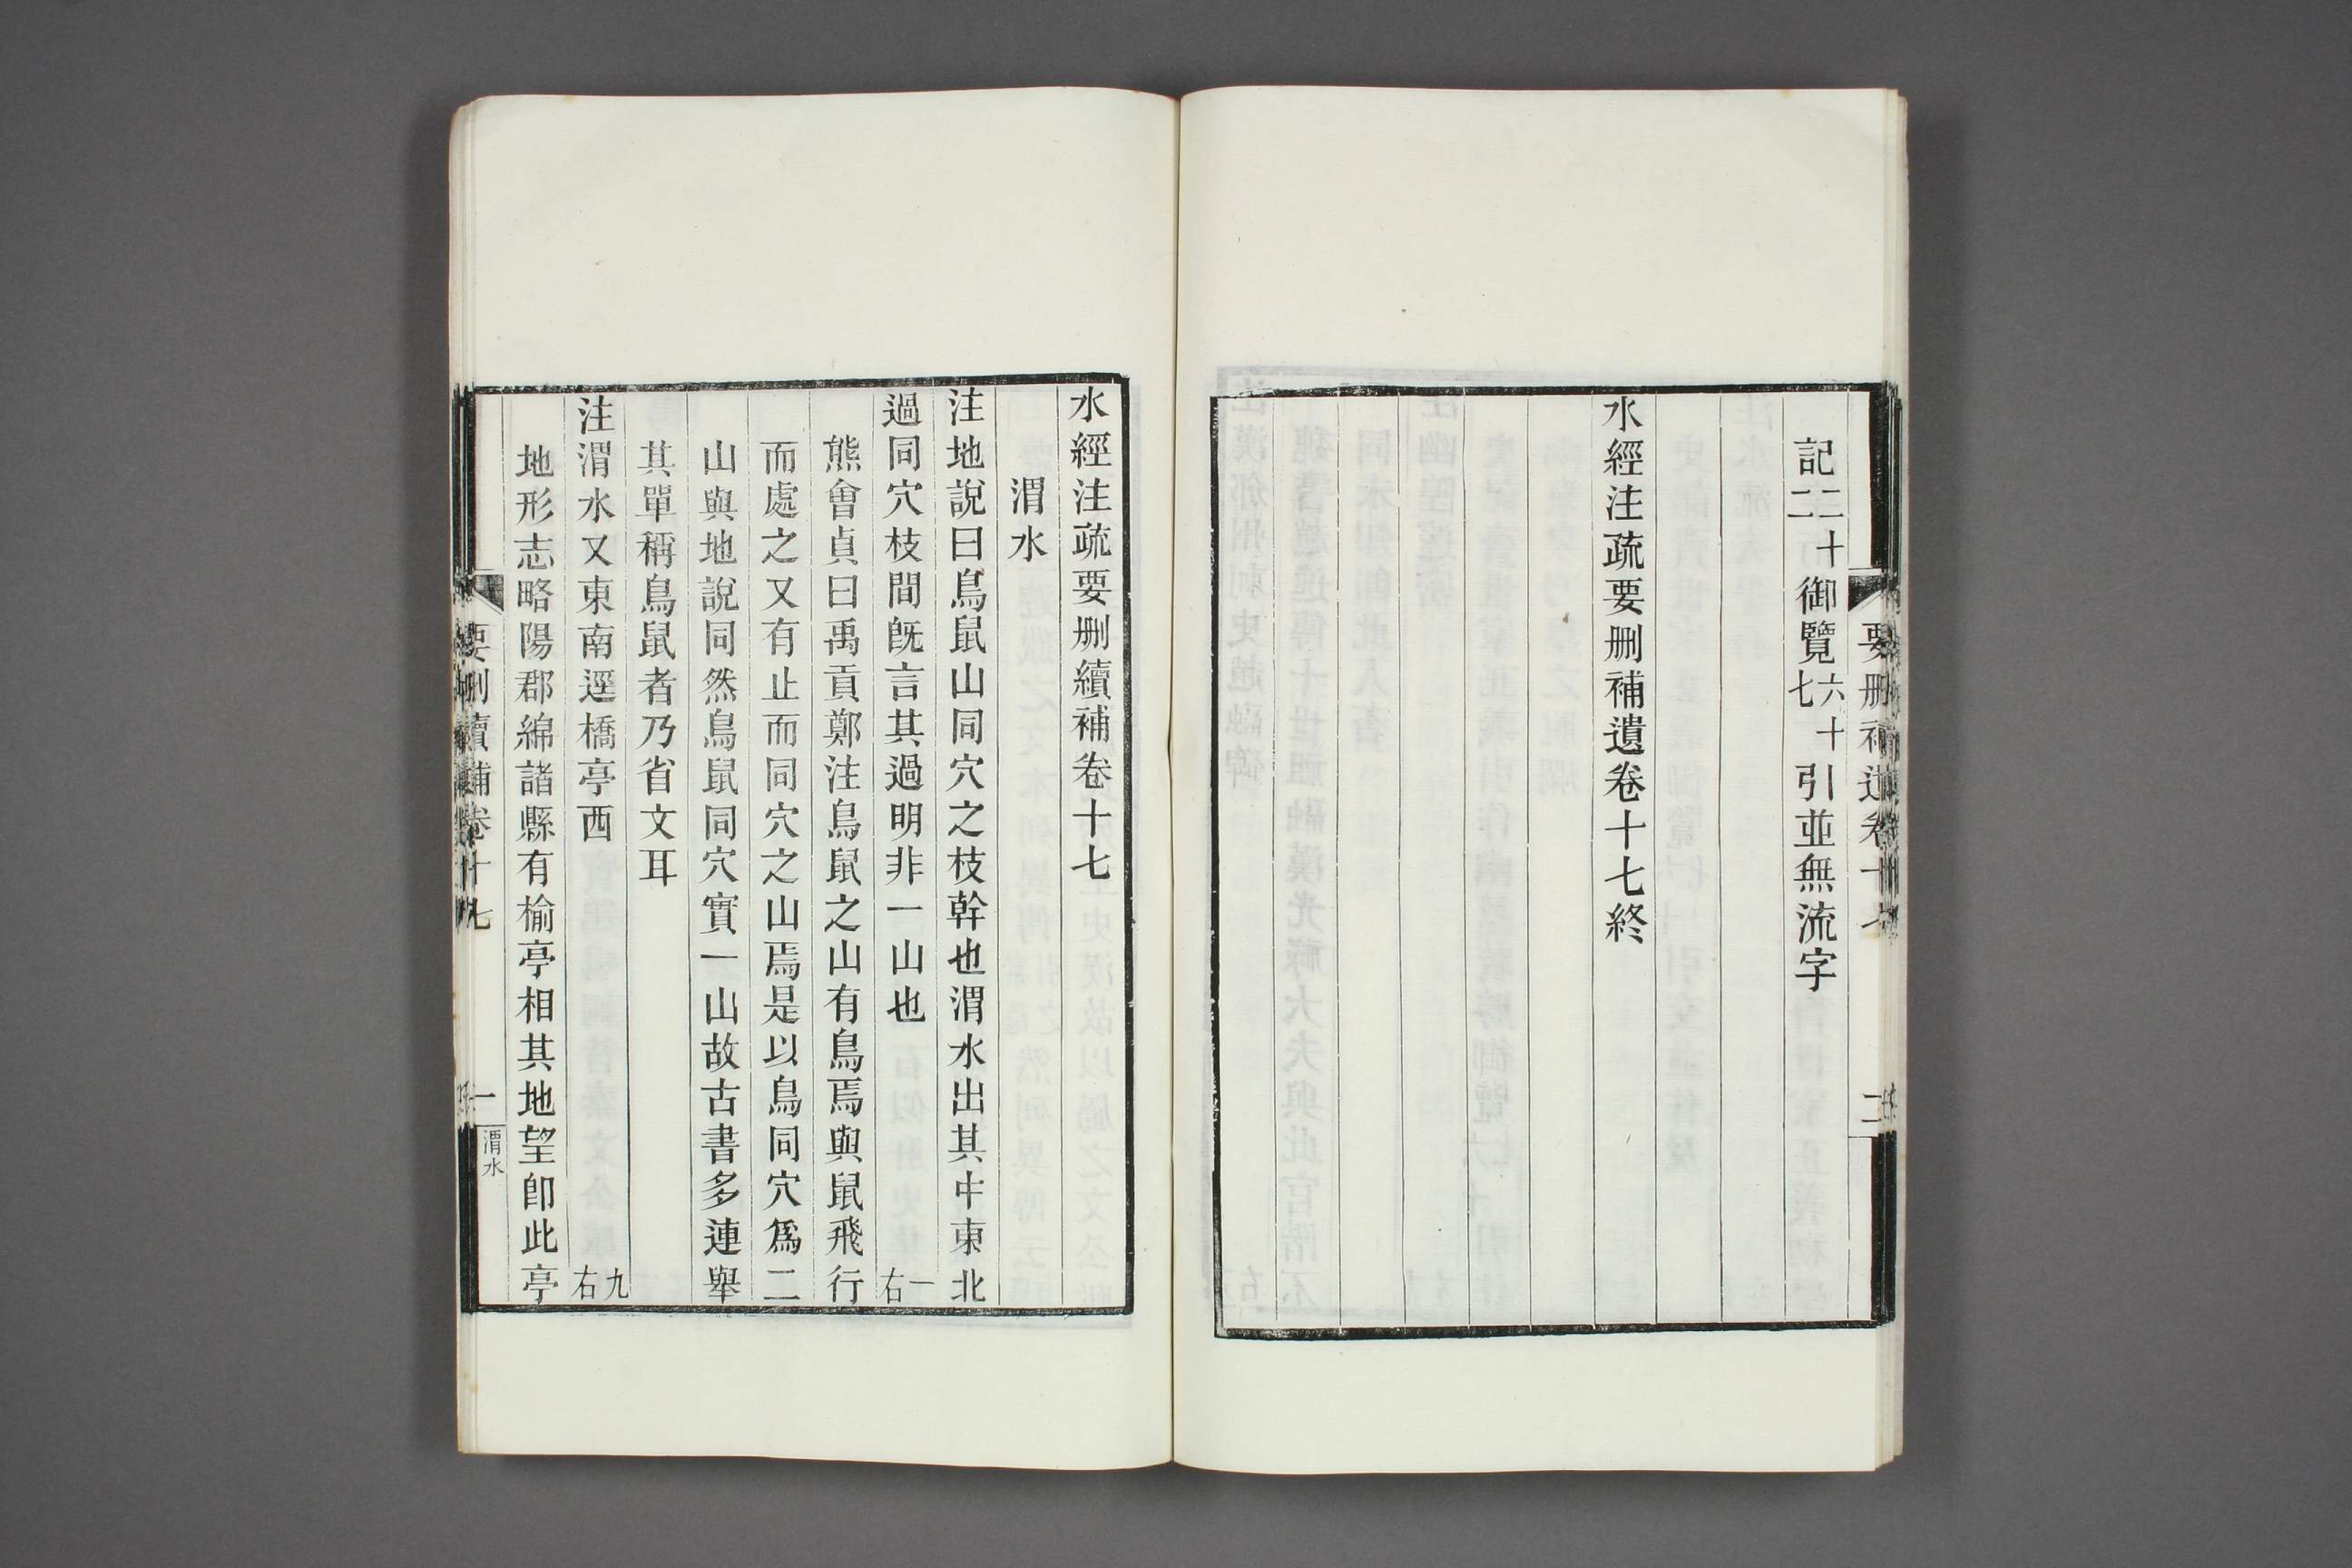 記二十二御覽六十七引並無流字
水經注疏要刪補遺卷十七終
要刪補遺卷十七
二
水經注疏要刪續補卷十七
渭水
注地說曰鳥鼠山同穴之枝幹也渭水出其中東北
過同穴枝間旣言其過明非一山也 一右
熊會貞曰禹貢鄭注鳥鼠之山有鳥焉與鼠飛行
而處之又有止而同穴之山焉是以鳥同穴爲二
山與地說同然鳥鼠同穴實一山故古書多連舉
其單稱鳥鼠者乃省文耳
注渭水又東南逕橋亭西 九右
地形志略陽郡綿諸縣有榆亭相其地望卽此亭
要刪續補卷十七
一
渭水